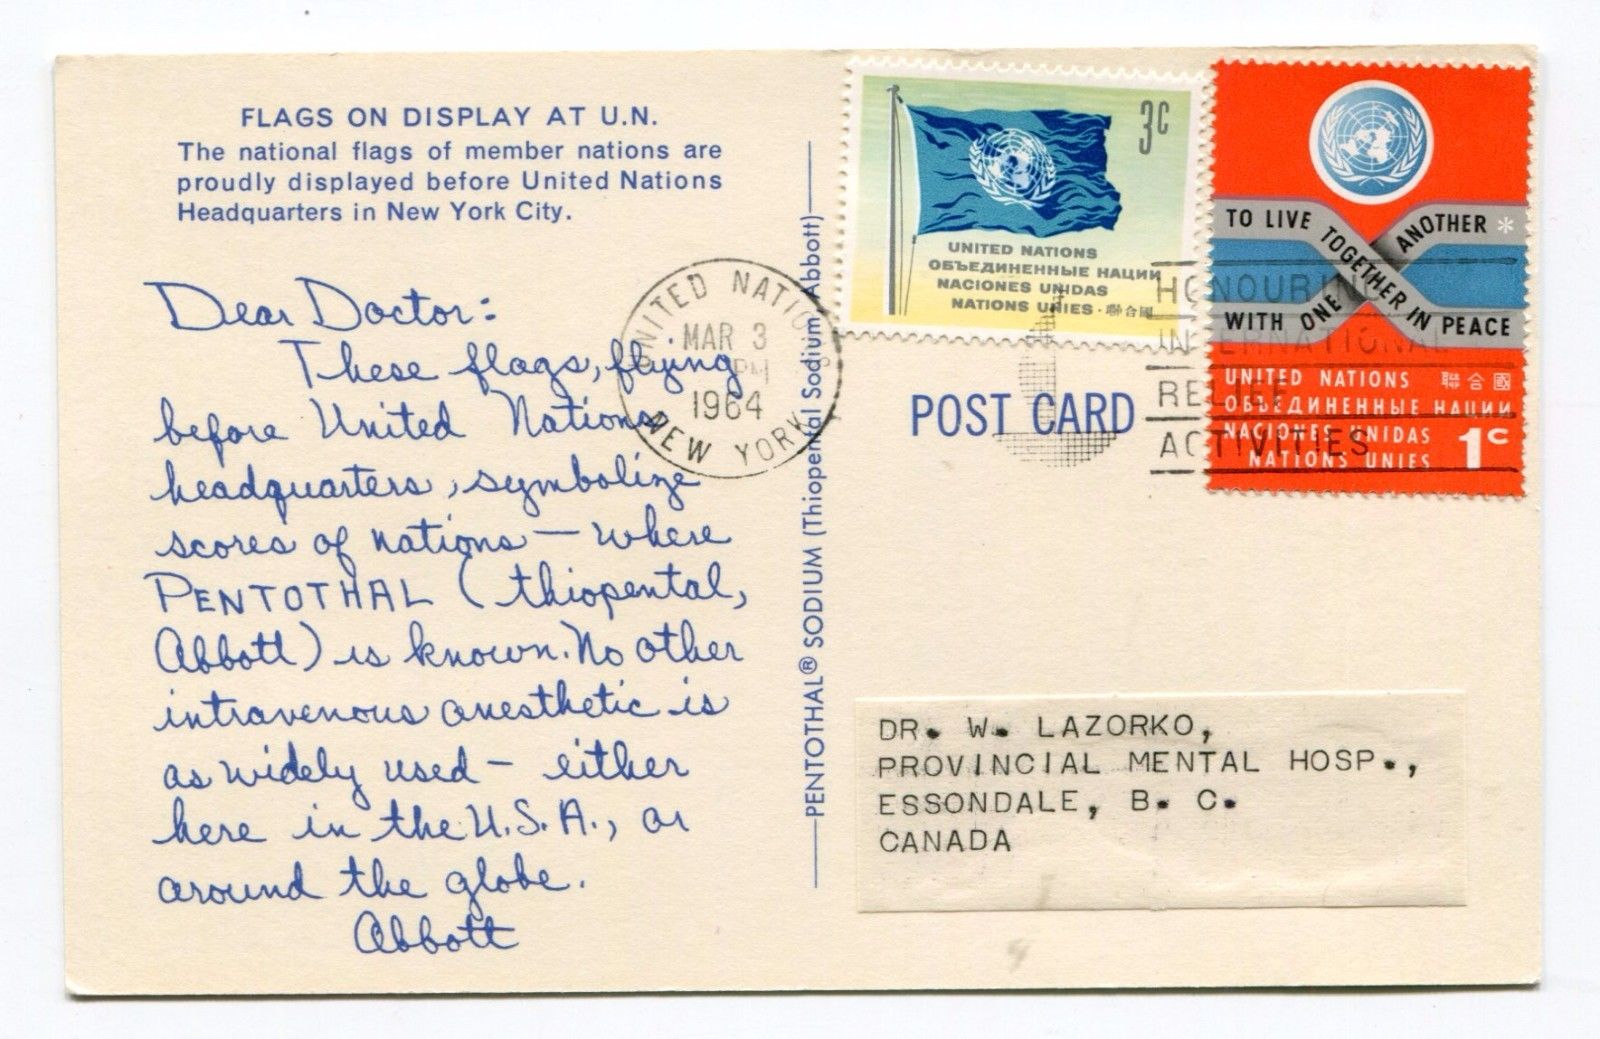 FLAGS ON DISPLAY AT U.N.
The national flags of member nations are
proudly displayed before United Nations
Headquarters in New York City.
Dear Doctor:
These flags, flying
before United Nations
headquarters, symbolize
scores of nations — where
PENTOTHAL (thiopental,
Abbott) is known. No other
intravenous anesthetic is
as widely used — either
here in the U.S.A., or
around the globe.
Abbott
PENTOTHAL® SODIUM (Thiopental Sodium, Abbott)
UNITED NATIONS
MAR 3
PM
1964
NEW YORK
3c
UNITED NATIONS
ОБЪЕДИНЕННЫЕ НАЦИИ
NACIONES UNIDAS
NATIONS UNIES · 聯合國
TO LIVE TOGETHER IN PEACE
WITH ONE ANOTHER *
UNITED NATIONS 聯合國
ОБЪЕДИНЕННЫЕ НАЦИИ
NACIONES UNIDAS
NATIONS UNIES 1c
HONOURING
INTERNATIONAL
RELIEF
ACTIVITIES
POST CARD
DR. W. LAZORKO,
PROVINCIAL MENTAL HOSP.,
ESSONDALE, B. C.
CANADA